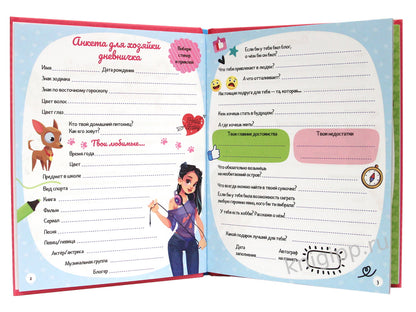 Анкета для хозяйки
дневничка
Выбери
стикер
и приклей
Имя Дата рождения
Знак зодиака
Знак по восточному гороскопу
Цвет волос
Цвет глаз
Кто твой домашний питомец?
Как его зовут?
Твои любимые...
Время года
Цвет
Предмет в школе
Вид спорта
Книга
Фильм
Сериал
Песня
Певец/певица
Актёр/актриса
Музыкальная группа
Блогер
2
Если бы у тебя был блог,
о чём бы он был?
Что тебя привлекает в людях?
А что отталкивает?
Настоящая подруга для тебя – та, которая...
Кем хочешь стать в будущем?
А где хочешь жить?
Твои главные достоинства
Твои недостатки
Что обязательно возьмёшь
на необитаемый остров?
Что всегда можно найти в твоей сумочке?
Если бы у тебя была возможность сыграть
любую героиню кино, кого бы ты выбрала?
У тебя есть хобби? Расскажи о нём!
Какой подарок лучший для тебя?
Дата
заполнения
Автограф
на память
3
knigtop.ru